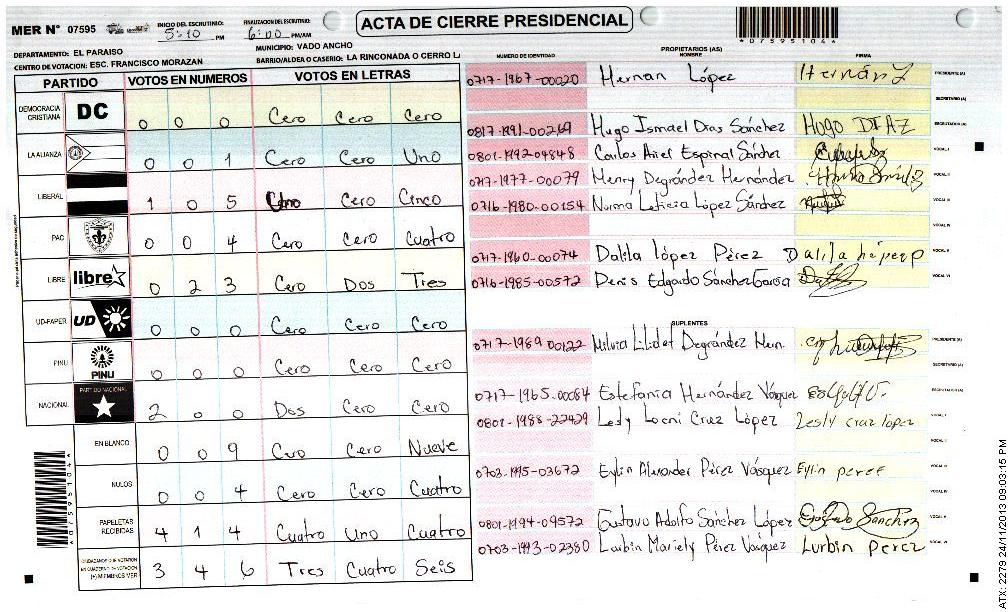 MER N° 07595 INICIO DEL ESCRUTINIO: 5:10 PM FINALIZACION DEL ESCRUTINIO: 6:00 PM/AM
ACTA DE CIERRE PRESIDENCIAL
*07595104*
DEPARTAMENTO: EL PARAISO MUNICIPIO: VADO ANCHO
CENTRO DE VOTACION: ESC. FRANCISCO MORAZAN BARRIO/ALDEA O CASERIO: LA RINCONADA O CERRO LA
PARTIDO VOTOS EN NUMEROS VOTOS EN LETRAS
DEMOCRACIA CRISTIANA DC 0 0 0 Cero Cero Cero
LA ALIANZA 0 0 1 Cero Cero Uno
LIBERAL 1 0 5 Uno Cero Cinco
PAC 0 0 4 Cero Cero Cuatro
LIBRE libre 0 2 3 Cero Dos Tres
UD-FAPER UD 0 0 0 Cero Cero Cero
PINU PINU 0 0 0 Cero Cero Cero
NACIONAL PARTIDO NACIONAL 2 0 0 Dos Cero Cero
EN BLANCO 0 0 9 Cero Cero Nueve
NULOS 0 0 4 Cero Cero Cuatro
PAPELETAS RECIBIDAS 4 1 4 Cuatro Uno Cuatro
CIUDADANOS QUE VOTARON EN CUADERNO DE VOTACION (+) MIEMBROS MER 3 4 6 Tres Cuatro Seis
*07595104*
PROPIETARIOS (AS)
NUMERO DE IDENTIDAD NOMBRE FIRMA
0717-1967-00020 Hernan López Hernán L PRESIDENTE (A)
SECRETARIO (A)
0817-1991-00269 Hugo Ismael Dias Sánchez HUGO DIAZ ESCRUTADOR (A)
0801-1992-04848 Carlos Ariel Espinal Sánchez VOCAL I
0717-1977-00079 Menry Degrández Hernández VOCAL II
0716-1980-00154 Norma Leticia López Sánchez VOCAL III
VOCAL IV
0717-1960-00074 Dalila López Pérez Dalila López P VOCAL V
0716-1985-00572 Denis Edgardo Sánchez Garcia VOCAL VI
SUPLENTES
0717-1989 00122 Milvia Lilidet Degrández Hern. PRESIDENTE (A)
SECRETARIO (A)
0717-1965-00084 Estefania Hernández Vásquez ESCRUTADOR (A)
0801-1988-22429 Lesly Locni Cruz López Lesly cruz lópez VOCAL I
VOCAL II
0703-1995-03672 Eylin Alexander Pérez Vásquez Eylin perez VOCAL III
VOCAL IV
0801-1994-09572 Gustavo Adolfo Sánchez López Gustavo Sanchez VOCAL V
0703-1993-02380 Lurbin Mariely Pérez Vásquez Lurbin perez VOCAL VI
ATX: 2279 24/11/2013 09:03:15 PM